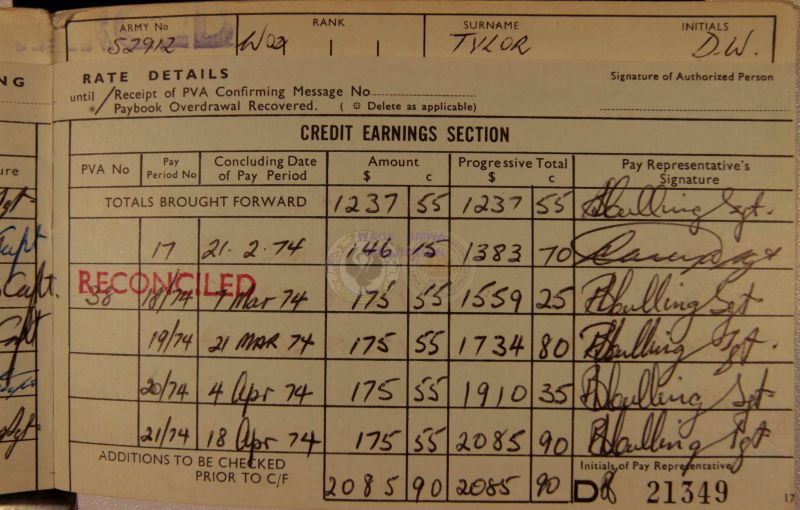 ARMY No RANK SURNAME INITIALS
52912 WO2 TYLOR D.W.
RATE DETAILS
Signature of Authorized Person
until / Receipt of PVA Confirming Message No
*/ Paybook Overdrawal Recovered. ( * Delete as applicable)
CREDIT EARNINGS SECTION
PVA No Pay Period No Concluding Date of Pay Period Amount $ c Progressive Total $ c Pay Representative's Signature
TOTALS BROUGHT FORWARD 1237 55 1237 55 Sgt.
17 21.2.74 146 15 1383 70
RECONCILED
38 18/74 7 Mar 74 175 55 1559 25 Sgt
19/74 21 MAR 74 175 55 1734 80 Sgt.
20/74 4 Apr 74 175 55 1910 35 Sgt
21/74 18 Apr 74 175 55 2085 90 Sgt
ADDITIONS TO BE CHECKED
PRIOR TO C/F 2085 90 2085 90
Initials of Pay Representative
D 21349
17